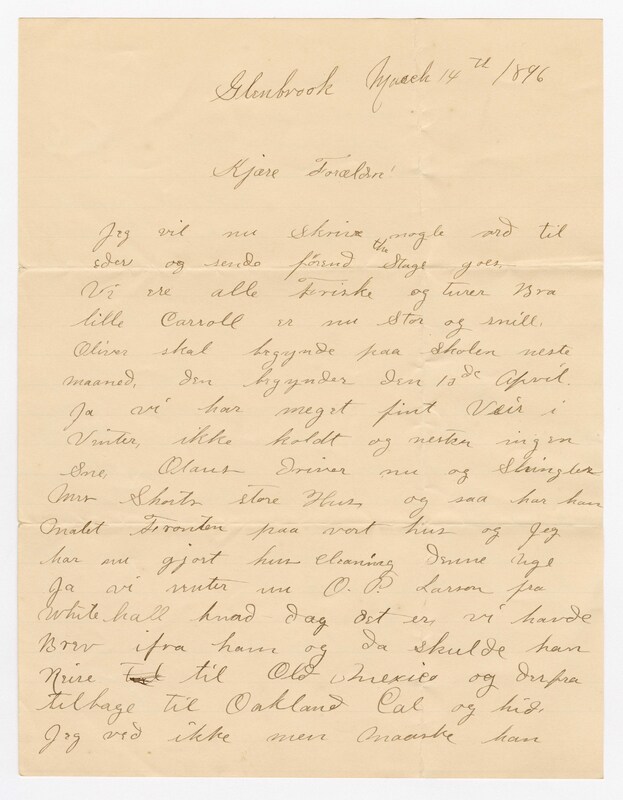 Glenbrook March 14th /1896
Kjære Forældre!
Jeg vil nu skrive nogle ord til
eder og sende førend the Stage goes.
Vi ere alle Friske og turer Bra
lille Carroll er nu Stor og snill.
Oliver skal begynde paa Skolen neste
maaned, den begynder den 13de April.
Ja vi har meget fint Veir i
Vinter, ikke koldt og nesten ingen
Sne, Olaus driver nu og Shingler
Mrs Shorts store Hus, og saa har han
Malet Fronten paa vort hus og Jeg
har nu gjort hus cleaning denne Uge
Ja vi venter nu O. P. Larson fra
Whitehall hvad dag det er, vi havde
Brev ifra ham og da skulde han
Reise til Old Mexico og derfra
tilbage til Oakland Cal og hid.
Jeg ved ikke men maaske han